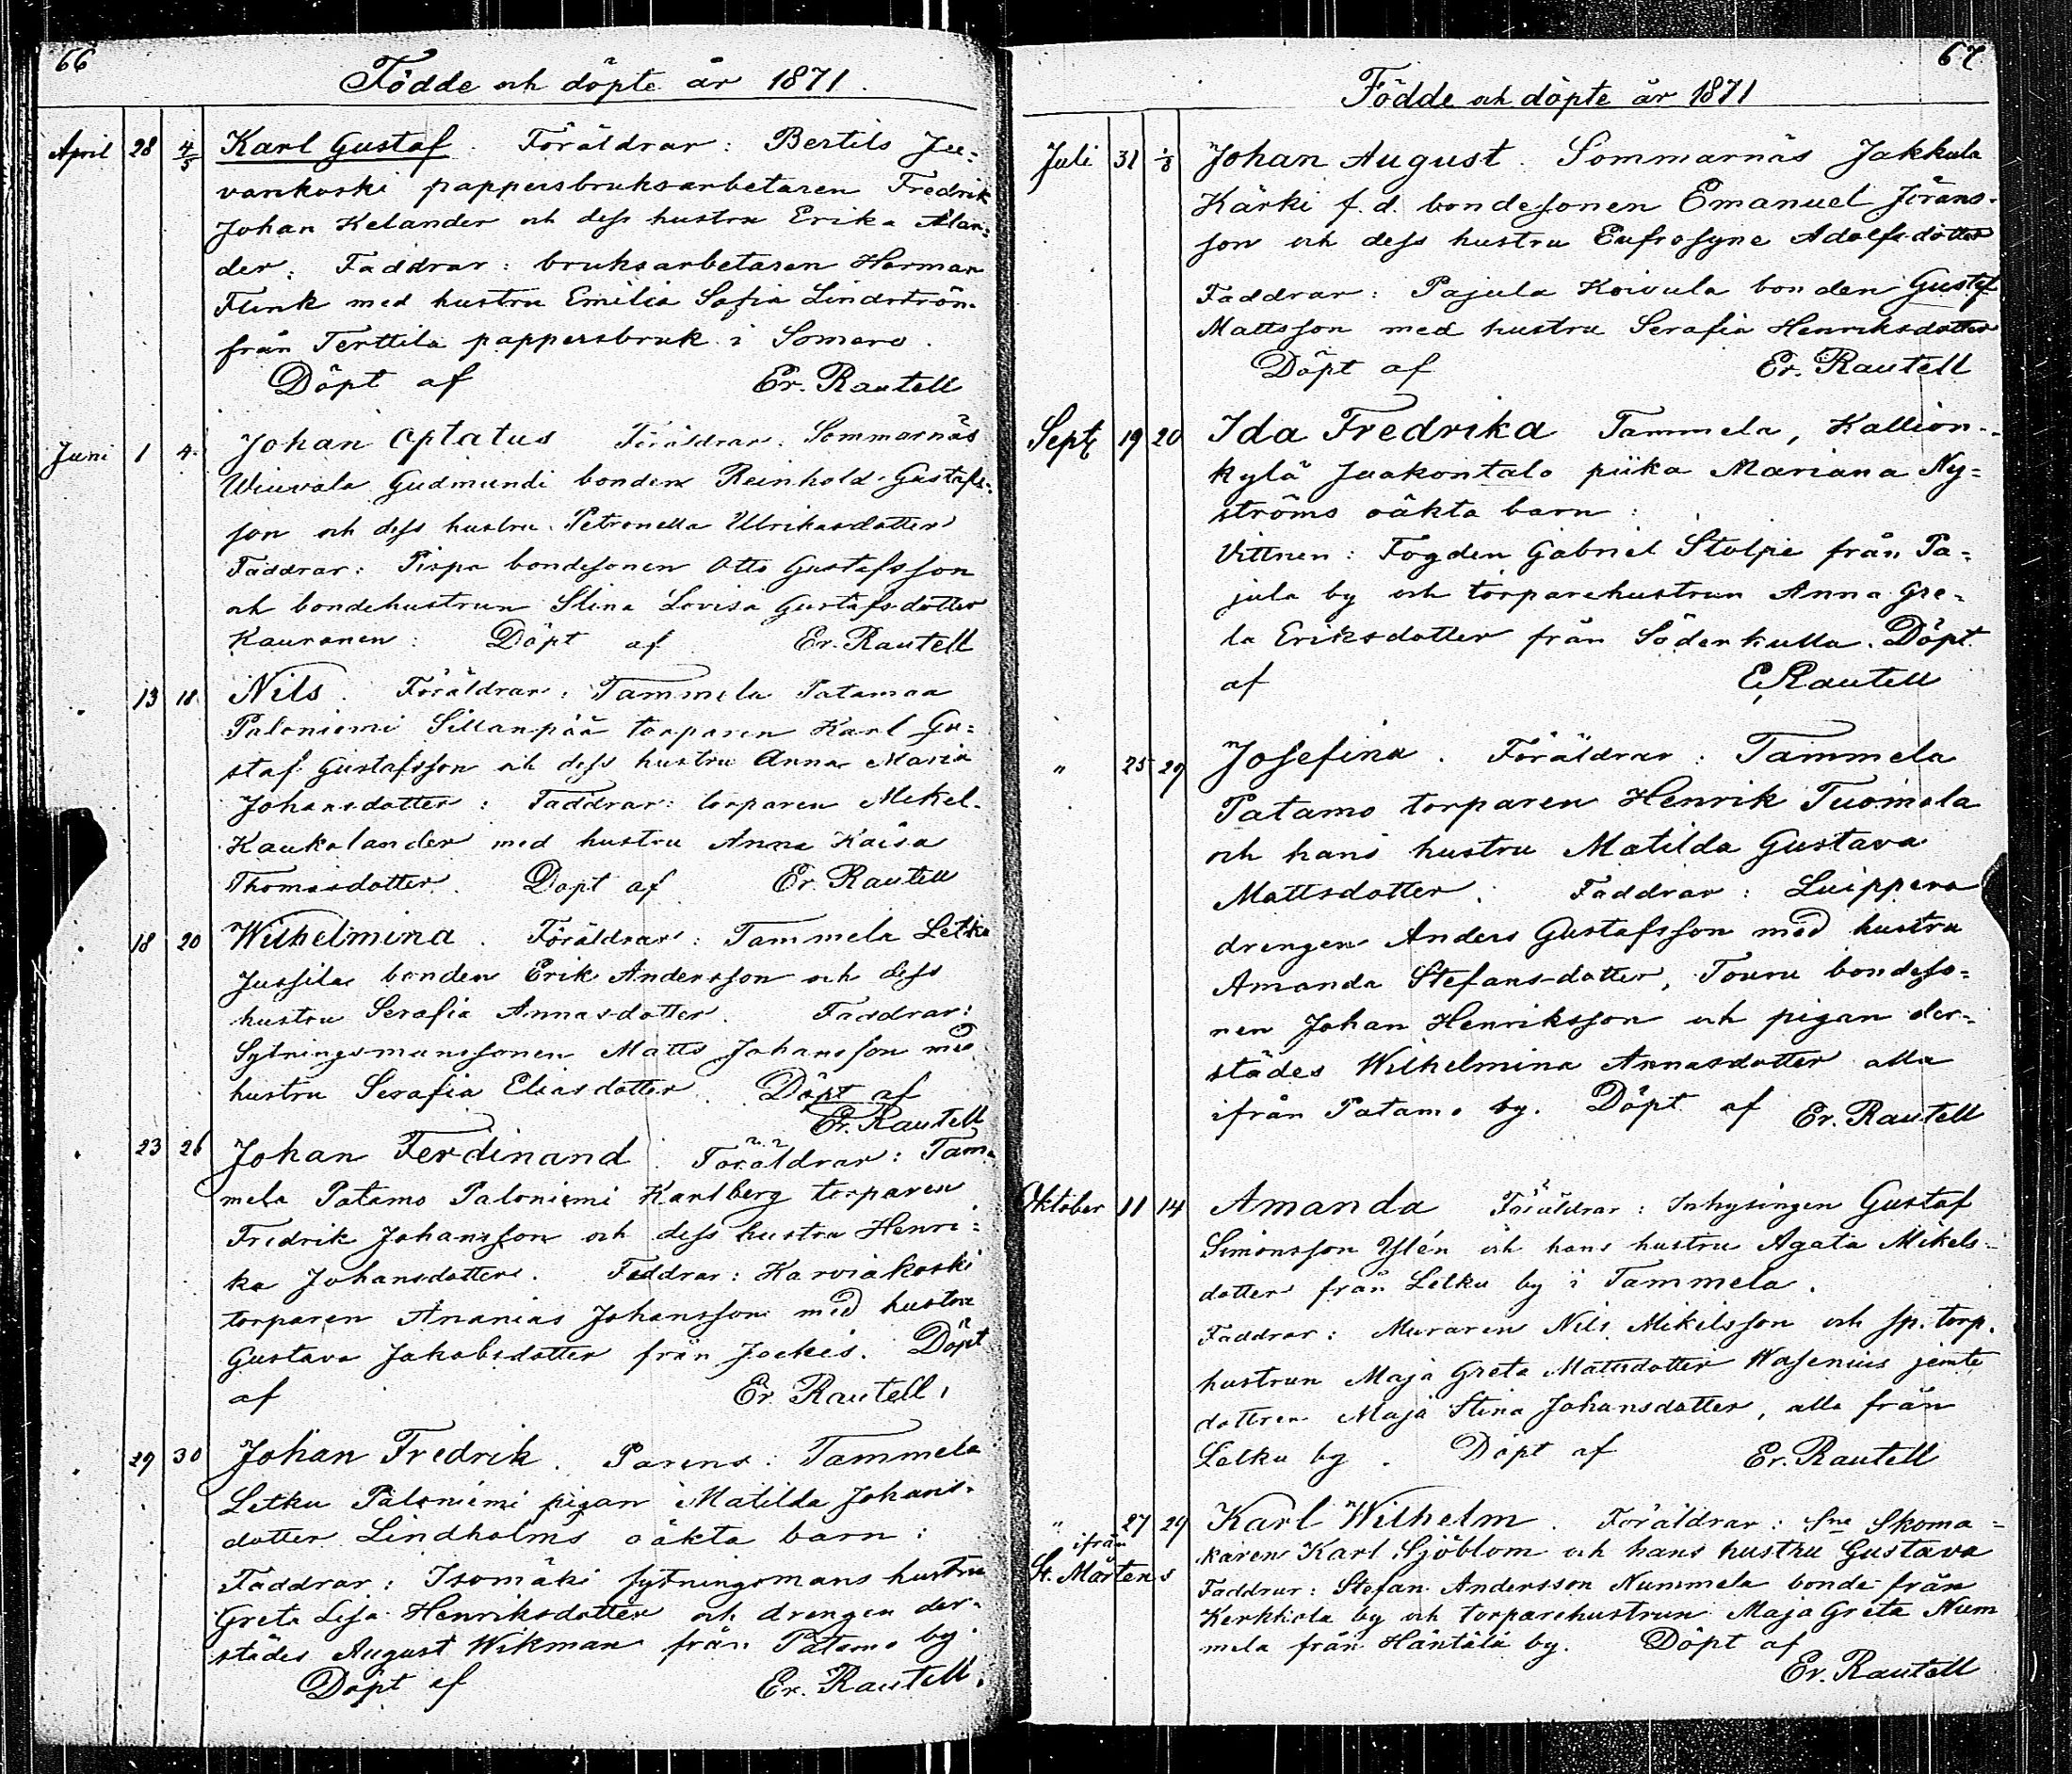 66
Födde och döpte år 1871.
April 28 4/5 Karl Gustaf. Föräldrar: Bertils Ju=
vankoski pappersbruksarbetaren Fredrik
Johan Kelander och dess hustru Erika Alan=
der: Faddrar: bruksarbetaren Herman
Flink med hustru Emilia Sofia Lindström
från Terttila pappersbruk i Somero.
Döpt af Er. Rautell
Juni 1 4. Johan Optatus Föräldrar: Sommarnäs
Wiuvala Gudmundi bonden Reinhold Gustafs=
son och dess hustru Petronella Ulrikasdotter
Faddrar: Pispa bondesonen Otto Gustafsson
och bondehustrun Stina Lovisa Gustafsdotter
Kauranen: Döpt af Er. Rautell
" 13 18. Nils. Föräldrar: Tammela Patamaa
Paloniemi Sillanpää torparen Karl Gu=
staf Gustafsson och dess hustru Anna Maria
Johansdotter: Faddrar: torparen Mikel
Kaukolander med hustru Anna Kaisa
Thomasdotter. Döpt af Er. Rautell
" 18 20 Wilhelmina. Föräldrar: Tammela Letku
Jussila bonden Erik Andersson och dess
hustru Serafia Annasdotter. Faddrar:
Sytningsmanssonen Matts Johansson med
hustru Serafia Eliasdotter. Döpt af
Er. Rautell
" 23 26 Johan Ferdinand. Föräldrar: Tam=
mela Patamo Paloniemi Karlberg torparen
Fredrik Johansson och dess hustru Henri=
ka Johansdotter. Faddrar: Karviakoski
torparen Ananias Johansson med hustru
Gustava Jakobsdotter från Jockis. Döpt
af Er. Rautell.
" 29 30 Johan Fredrik. Parens: Tammela
Letku Paloniemi pigan Matilda Johans=
dotter Lindholms oäkta barn:
Faddrar: Isomäki sytningsmans hustru
Greta Lisa Henriksdotter och drengen der=
städes August Wikman från Patamo by.
Döpt af Er. Rautell.
67
Födde och döpte år 1871
Juli 31 1/8 Johan August. Sommarnäs Jakkula
Kärki f.d. bondesonen Emanuel Jörans=
son och dess hustru Eufrosyne Adolfsdotter
Faddrar: Pajula Koivula bonden Gustaf
Mattsson med hustru Serafia Henriksdotter
Döpt af Er. Rautell
Sept 19 20 Ida Fredrika Tammela, Kallion=
kylä Jaakontalo piika Mariana Ny=
ströms oäkta barn:
Vittnen: Fogden Gabriel Stolpe från Pa=
jula by och torparehustrun Anna Gre=
ta Eriksdotter från Söderkulla. Döpt
af E. Rautell
" 25 29 Josefina. Föräldrar: Tammela
Patamo torparen Henrik Tuomola
och hans hustru Matilda Gustava
Mattsdotter. Faddrar: Luippero
drengen Anders Gustafsson med hustru
Amanda Stefans-dotter, Touru bondeso=
nen Johan Henriksson och pigan der=
städes Wilhelmina Annasdotter alla
ifrån Patamo by. Döpt af Er. Rautell
Oktober 11 14 Amanda Föräldrar: Inhysingen Gustaf
Simonsson Ylén och hans hustru Agata Mikels=
dotter från Letku by i Tammela.
Faddrar: Muraren Nils Mikilsson och sp. torp.
hustrun Maja Greta Mattsdotter Wasenius jemte
dottren Maja Stina Johansdotter, alla från
Letku by. Döpt af Er. Rautell
" 27 29 Karl Wilhelm. Föräldrar: Sne Skoma=
ifrån
St. Mårtens
karen Karl Sjöblom och hans hustru Gustava
Faddrar: Stefan Andersson Nummela bonde från
Kerkkola by och torparehustrun Maja Greta Num
mela från Häntälä by. Döpt af
Er. Rautell